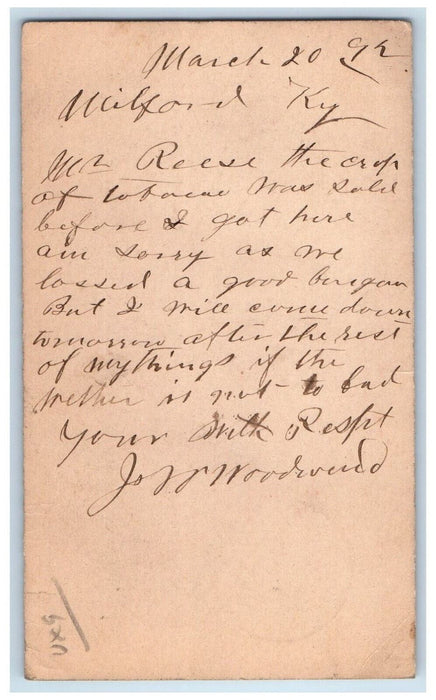 March 20 92.
Milford Ky
Mr Reese the crop
of tobacco was sold
before I got here
am sorry as we
lossed a good
But I will come down
tomorrow after the rest
of my things if the
wether is not to bad
Your With Respt
Jo W Woodward